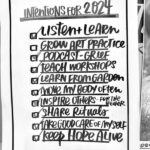 INTENTIONS FOR 2024
LISTEN + LEARN
GROW ART PRACTICE
PODCAST - GRIEF
TEACH WORKSHOPS
LEARN FROM GARDEN
MOVE MY BODY OFTEN
INSPIRE OTHERS FOR THE
SHARE RITUALS
TAKE GOOD CARE OF MYSELF
KEEP HOPE ALIVE